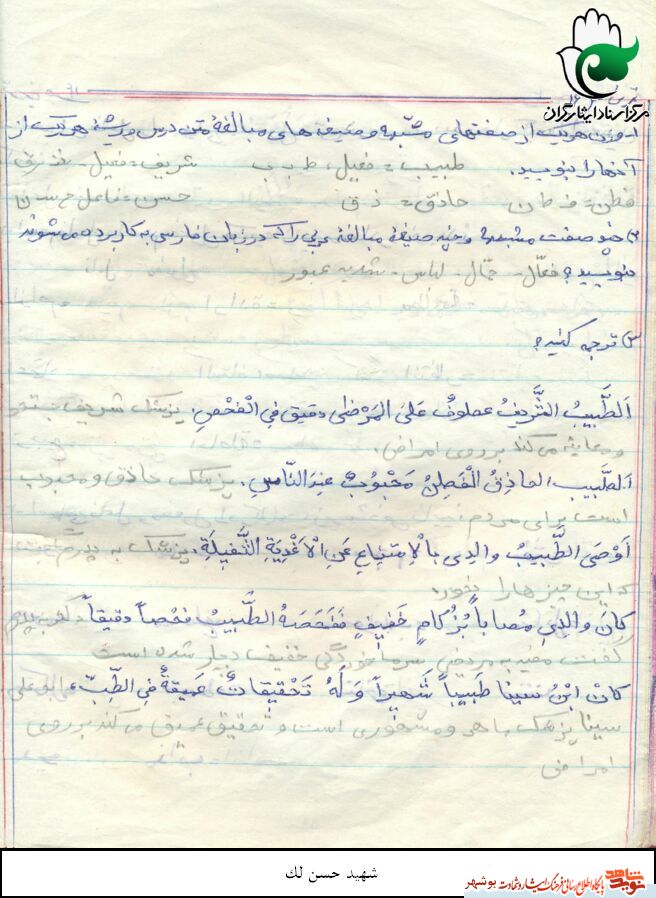 مرکز اسناد ایثارگران
۱- وزن هر یک از صفتهای مشبهه و صیغه های مبالغهٔ متن درس و ریشهٔ هر یک از
آنها را بنویسید. طبیب = فعیل، ط ب ب شریف = فعیل -
فطن = ف ط ن حاذق = ذ ق حسن = فاعل ح س ن
۲) چند صفت مشبهه و چند صیغهٔ مبالغهٔ عربی را که در زبان فارسی به کار برده می شوند
بنویسید؟ فعّال - حمّال - لباس - شدید عبور
س) ترجمه کنید؟
اَلطَّبیبُ الشَّریفُ عطوفٌ عَلیَ الْمَرْضیٰ دقیق فِی الْفَحْصِ. پزشک شریف
و معاینه می کند بر روی امراض.
اَلطَّبیب الحاذِقُ الْفَطِنُ مَحْبُوبٌ عِندَ النّاسِ. پزشک حاذق و محبوب
است برای مردم
اَوْصَی الطَّبیبُ والِدی بالْاِمتِناعِ عَنِ الْاَغْذِیَةِ الثَّقیلَةِ. پزشک به پدرم
که این چیزها را نخورد.
کانَ والِدیِ مُصاباً بِزُکامٍ خَفیفٍ فَفَحَصَهُ الطَّبیبُ فَحْصاً دَقیقاً
گفت سرماخوردگی خفیف دچار شده است
کانَ ابْنُ سینا طَبیباً شَهیراً وَ لَهُ تَحْقیقاتٌ عَمیقَةٌ فِی الطِّبِّ، ابوعلی
سینا پزشک ماهر و مشهوری است و تحقیق عمیق می کند بر روی
امراض
شهید حسن لك
نوید شاهد
پایگاه اطلاع رسانی فرهنگ ایثار و شهادت بوشهر